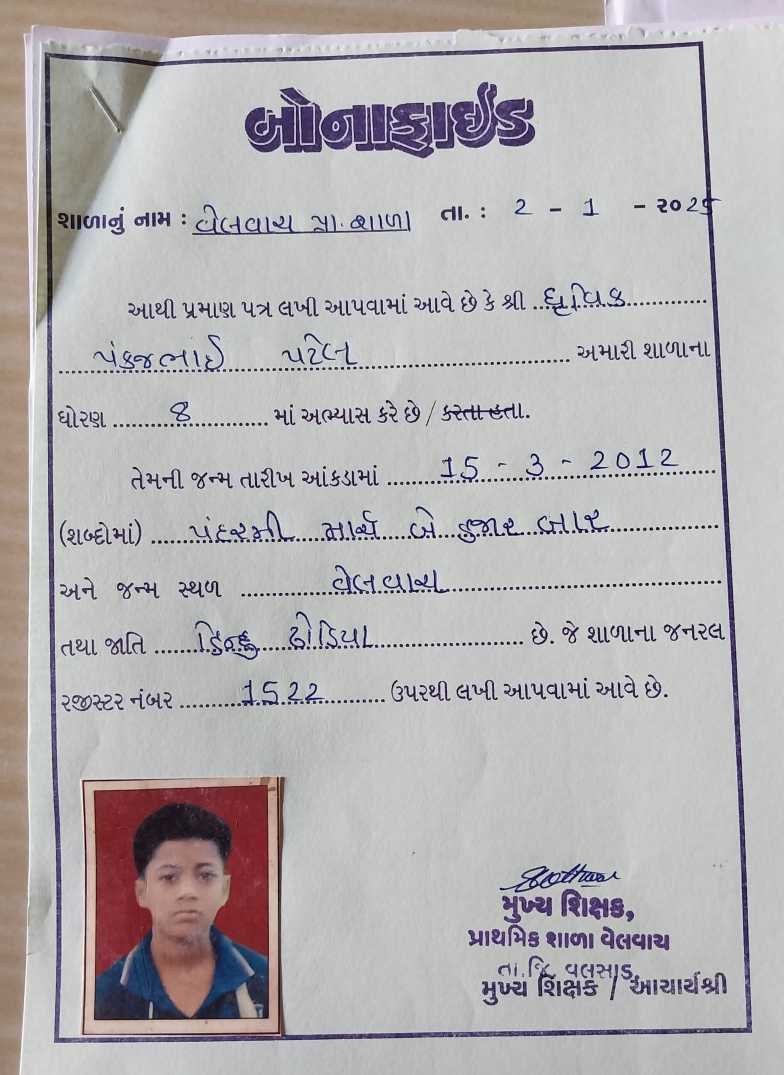 બોનાફાઈડ
શાળાનું નામ : વેલવાચ પ્રા. શાળા તા. : 2 - 1 - ૨૦25
આથી પ્રમાણ પત્ર લખી આપવામાં આવે છે કે શ્રી ..ધ્રુવિક..............
પંકજભાઈ પટેલ અમારી શાળાના
ધોરણ ............8............. માં અભ્યાસ કરે છે / કરતા હતા.
તેમની જન્મ તારીખ આંકડામાં ........15 - 3 - 2012......
(શબ્દોમાં) ......પંદરમી માર્ચ બે હજાર બાર..................
અને જન્મ સ્થળ ...............વેલવાચ..............................................
તથા જાતિ .......હિન્દુ ઢોડિયા......................... છે. જે શાળાના જનરલ
રજીસ્ટર નંબર ...........1522............ ઉપરથી લખી આપવામાં આવે છે.
મુખ્ય શિક્ષક,
પ્રાથમિક શાળા વેલવાચ
તા.જિ. વલસાડ
મુખ્ય શિક્ષક / આચાર્યશ્રી